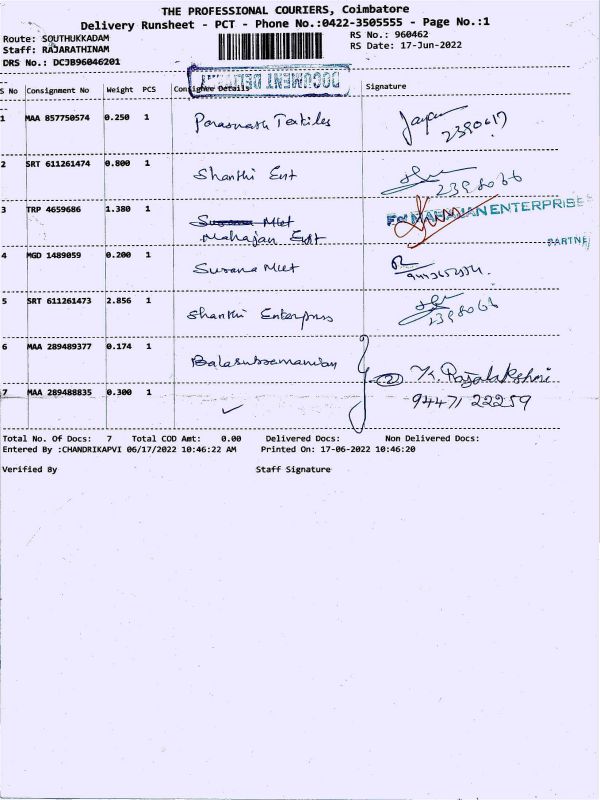 THE PROFESSIONAL COURIERS, Coimbatore
Delivery Runsheet - PCT - Phone No.:0422-3505555 - Page No.:1
Route: SOUTHUKKADAM RS No.: 960462
Staff: RAJARATHINAM RS Date: 17-Jun-2022
DRS No.: DCJB96046201
DOCUMENT
S No Consignment No Weight PCS Consignee Details Signature
1 MAA 857750574 0.250 1 Parasnath Textiles
2390617
2 SRT 611261474 0.800 1 Shanthi Ent
2398066
3 TRP 4659686 1.380 1 Surana Mket For MAHAJAN ENTERPRISES
Mahajan Ent PARTNE
4 MGD 1489059 0.200 1 Surana Mket
5 SRT 611261473 2.856 1 Shanthi Enterprises
2398066
6 MAA 289489377 0.174 1 Balasubramanian
(2) K. Rajalakshmi
7 MAA 289488835 0.300 1 ✓ 94471 22259
Total No. Of Docs: 7 Total COD Amt: 0.00 Delivered Docs: Non Delivered Docs:
Entered By :CHANDRIKAPVI 06/17/2022 10:46:22 AM Printed On: 17-06-2022 10:46:20
Verified By Staff Signature